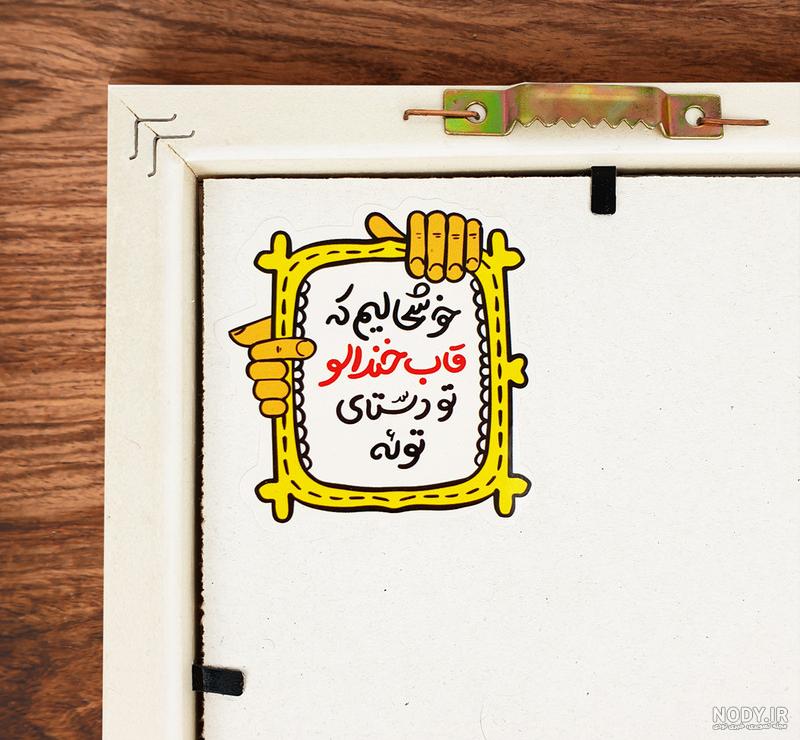 خوشحالیم که
قاب خندالو
تو دستای
توئه
NODY.IR